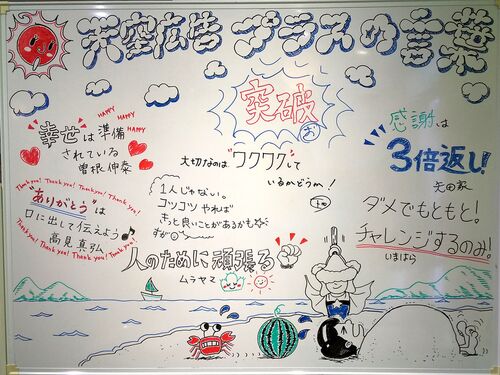 天空広告 プラスの言葉
HAPPY
HAPPY
HAPPY
HAPPY
幸せは準備
されている
曽根 伸泰
突破
お
大切なのは"ワクワク"して
いるかどうか！
感謝は
3倍返し！
Thank you! Thank you! Thank you! Thank you!
"ありがとう"は
口に出して伝えよう
高見 真弘
Thank you! Thank you! Thank you! Thank you!
1人じゃない。
コツコツ やれば
きっと良いことがあるかも
すが
ダメでもともと！
チャレンジするのみ！
いまはら
人のために頑張る
ムラヤマ